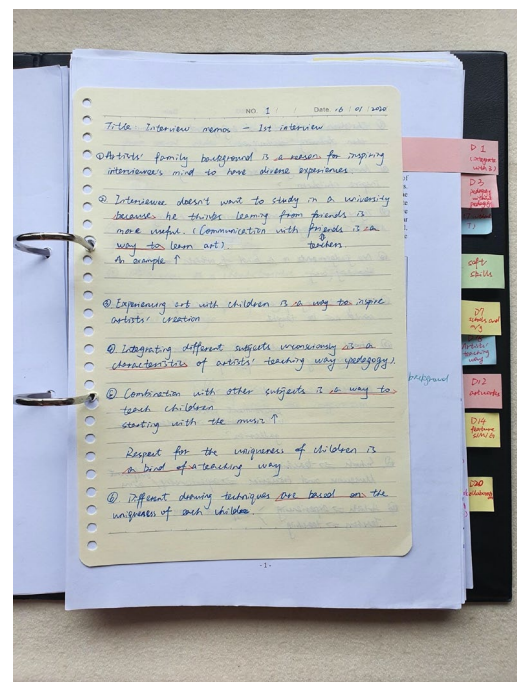 NO. 1
Date. 16 / 01 / 2020
Title Interview memos - 1st interview
① Artists' family background is a reason for inspiring
interviewee's mind to have diverse experiences
② Interviewee doesn't want to study in a university
because he thinks learning from friends is
more useful. (Communication with friends is a
way to learn art).
teachers
An example ↑
③ Experiencing art with children is a way to inspire
artists' creation
④ Integrating different subjects unconsciously is a
characteristics of artists' teaching way (pedagogy).
⑤ Combination with other subjects is a way to
teach children
starting with the music ↑
Respect for the uniqueness of children is
a kind of a teaching way
⑥ Different drawing techniques are based on the
uniqueness of each children.
-1-
D1
(integrate
with 2)
D3
pedagogy
without
pedagogy
soft
skills
D7
Artists'
teaching
way
background
D12
artworks
D14
feature
D20